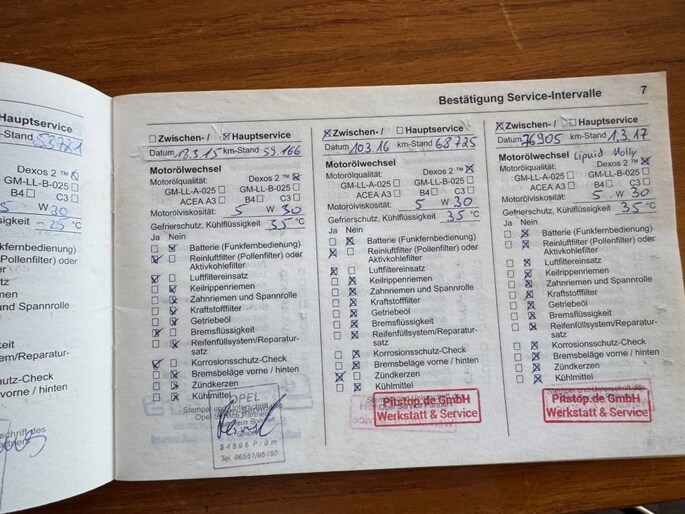 Hauptservice
-Stand 53781
Dexos 2 ™ ☒
GM-LL-B-025 ☐
B4 ☐ C3 ☐
5 W 30
-25 °C
nkfernbedienung)
ollenfilter) oder
n
nd Spannrolle
eit
stem/Reparatur-
chutz-Check
e vorne / hinten
Bestätigung Service-Intervalle 7
☐ Zwischen- / ☒ Hauptservice
Datum 18.3.15 km-Stand 59.166
Motorölwechsel
Motorölqualität: Dexos 2 ™ ☒
GM-LL-A-025 ☐ GM-LL-B-025 ☐
ACEA A3 ☐ B4 ☐ C3 ☐
Motorölviskosität: 5 W 30
Gefrierschutz, Kühlflüssigkeit 35 °C
Ja Nein
☐ ☒ Batterie (Funkfernbedienung)
☒ ☐ Reinluftfilter (Pollenfilter) oder
Aktivkohlefilter
☒ ☐ Luftfiltereinsatz
☐ ☒ Keilrippenriemen
☐ ☒ Zahnriemen und Spannrolle
☐ ☒ Kraftstofffilter
☐ ☒ Getriebeöl
☒ ☐ Bremsflüssigkeit
☐ ☒ Reifenfüllsystem/Reparatur-
satz
☒ ☐ Korrosionsschutz-Check
☐ ☒ Bremsbeläge vorne / hinten
☐ ☒ Zündkerzen
☐ ☒ Kühlmittel
OPEL
☒ Zwischen- / ☐ Hauptservice
Datum 10.3.16 km-Stand 68725
Motorölwechsel
Motorölqualität: Dexos 2 ™ ☒
GM-LL-A-025 ☐ GM-LL-B-025 ☐
ACEA A3 ☐ B4 ☐ C3 ☐
Motorölviskosität: 5 W 30
Gefrierschutz, Kühlflüssigkeit 35 °C
Ja Nein
☐ ☒ Batterie (Funkfernbedienung)
☒ ☐ Reinluftfilter (Pollenfilter) oder
Aktivkohlefilter
☒ ☐ Luftfiltereinsatz
☐ ☒ Keilrippenriemen
☐ ☒ Zahnriemen und Spannrolle
☐ ☒ Kraftstofffilter
☐ ☒ Getriebeöl
☐ ☒ Bremsflüssigkeit
☐ ☒ Reifenfüllsystem/Reparatur-
satz
☐ ☒ Korrosionsschutz-Check
☐ ☒ Bremsbeläge vorne / hinten
☒ ☐ Zündkerzen
☐ ☒ Kühlmittel
Pitstop.de GmbH
Werkstatt & Service
☒ Zwischen- / ☐ Hauptservice
Datum 76905 km-Stand 1.3.17
Motorölwechsel Liquid Molly
Motorölqualität: Dexos 2 ™ ☒
GM-LL-A-025 ☐ GM-LL-B-025 ☐
ACEA A3 ☐ B4 ☐ C3 ☐
Motorölviskosität: 5 W 30
Gefrierschutz, Kühlflüssigkeit 35 °C
Ja Nein
☐ ☒ Batterie (Funkfernbedienung)
☐ ☒ Reinluftfilter (Pollenfilter) oder
Aktivkohlefilter
☐ ☒ Luftfiltereinsatz
☐ ☒ Keilrippenriemen
☐ ☒ Zahnriemen und Spannrolle
☐ ☒ Kraftstofffilter
☐ ☒ Getriebeöl
☐ ☒ Bremsflüssigkeit
☐ ☒ Reifenfüllsystem/Reparatur-
satz
☐ ☒ Korrosionsschutz-Check
☐ ☒ Bremsbeläge vorne / hinten
☐ ☒ Zündkerzen
☐ ☒ Kühlmittel
Pitstop.de GmbH
Werkstatt & Service